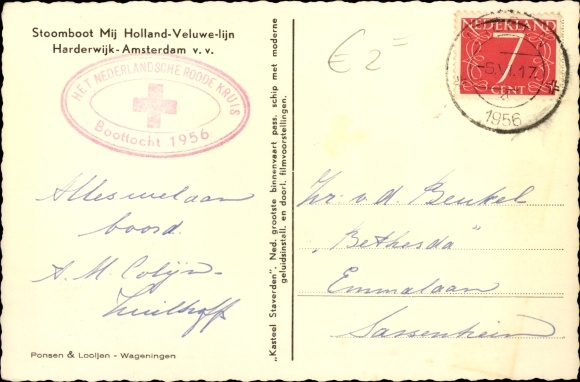 Stoomboot Mij Holland-Veluwe-lijn
Harderwijk-Amsterdam v. v.
HET NEDERLANDSCHE ROODE KRUIS
Boottocht 1956
Alles wel aan
boord.
A. M. Colijn-
Ponsen & Looijen - Wageningen
„Kasteel Staverden". Ned. grootste binnenvaart pass. schip met moderne
geluidsinstall. en doorl. filmvoorstellingen.
€ 2=
NEDERLAND
7
CENT
-5.VI.17
1956
Zr. v. d. Beukel
„Bethesda"
Emmalaan
Sassenheim